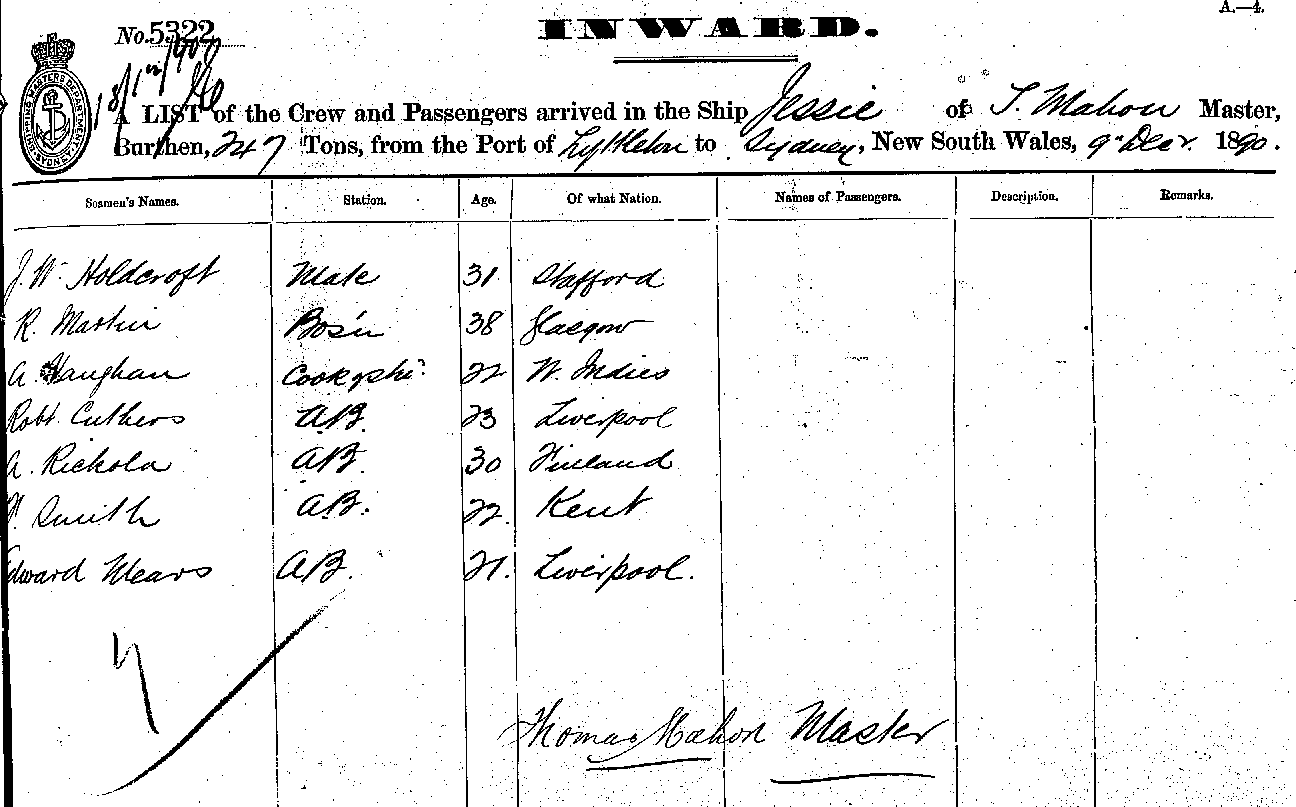 A.—4.
No. 5322
INWARD.
SHIPPING MASTERS DEPARTMENT SYDNEY
A LIST of the Crew and Passengers arrived in the Ship Jessie of T. Mahon Master,
Burthen, 247 Tons, from the Port of Lyttelton to Sydney, New South Wales, 9th Decr. 1890.
Seamen's Names. Station. Age. Of what Nation. Names of Passengers. Description. Remarks.
J. W. Holdcroft Mate 31 Stafford
R. Martin Bos'n 38 Glasgow
A. Vaughan Cook 22 W. Indies
Robt. Cuthers A.B. 23 Liverpool
A. Rickola A.B. 30 Finland
Smith A.B. 22. Kent
Edward Mears A.B. 21. Liverpool.
7
Thomas Mahon Master